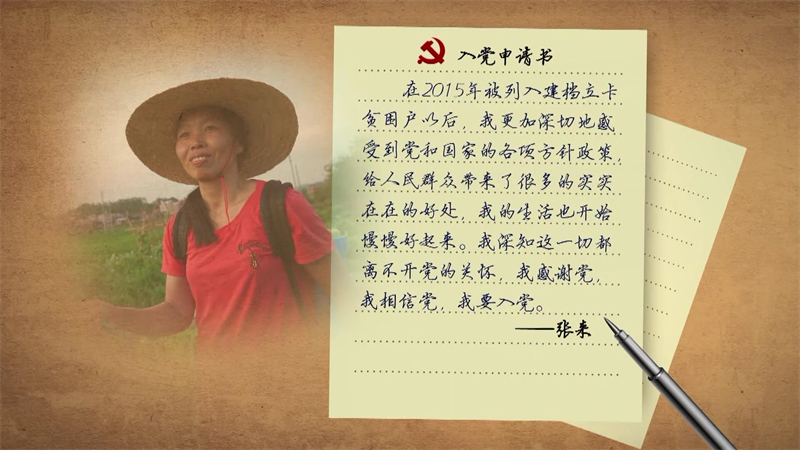 入党申请书
在2015年被列入建档立卡
贫困户以后，我更加深切地感
受到党和国家的各项方针政策，
给人民群众带来了很多的实实
在在的好处，我的生活也开始
慢慢好起来。我深知这一切都
离不开党的关怀，我感谢党，
我相信党，我要入党。
——张来